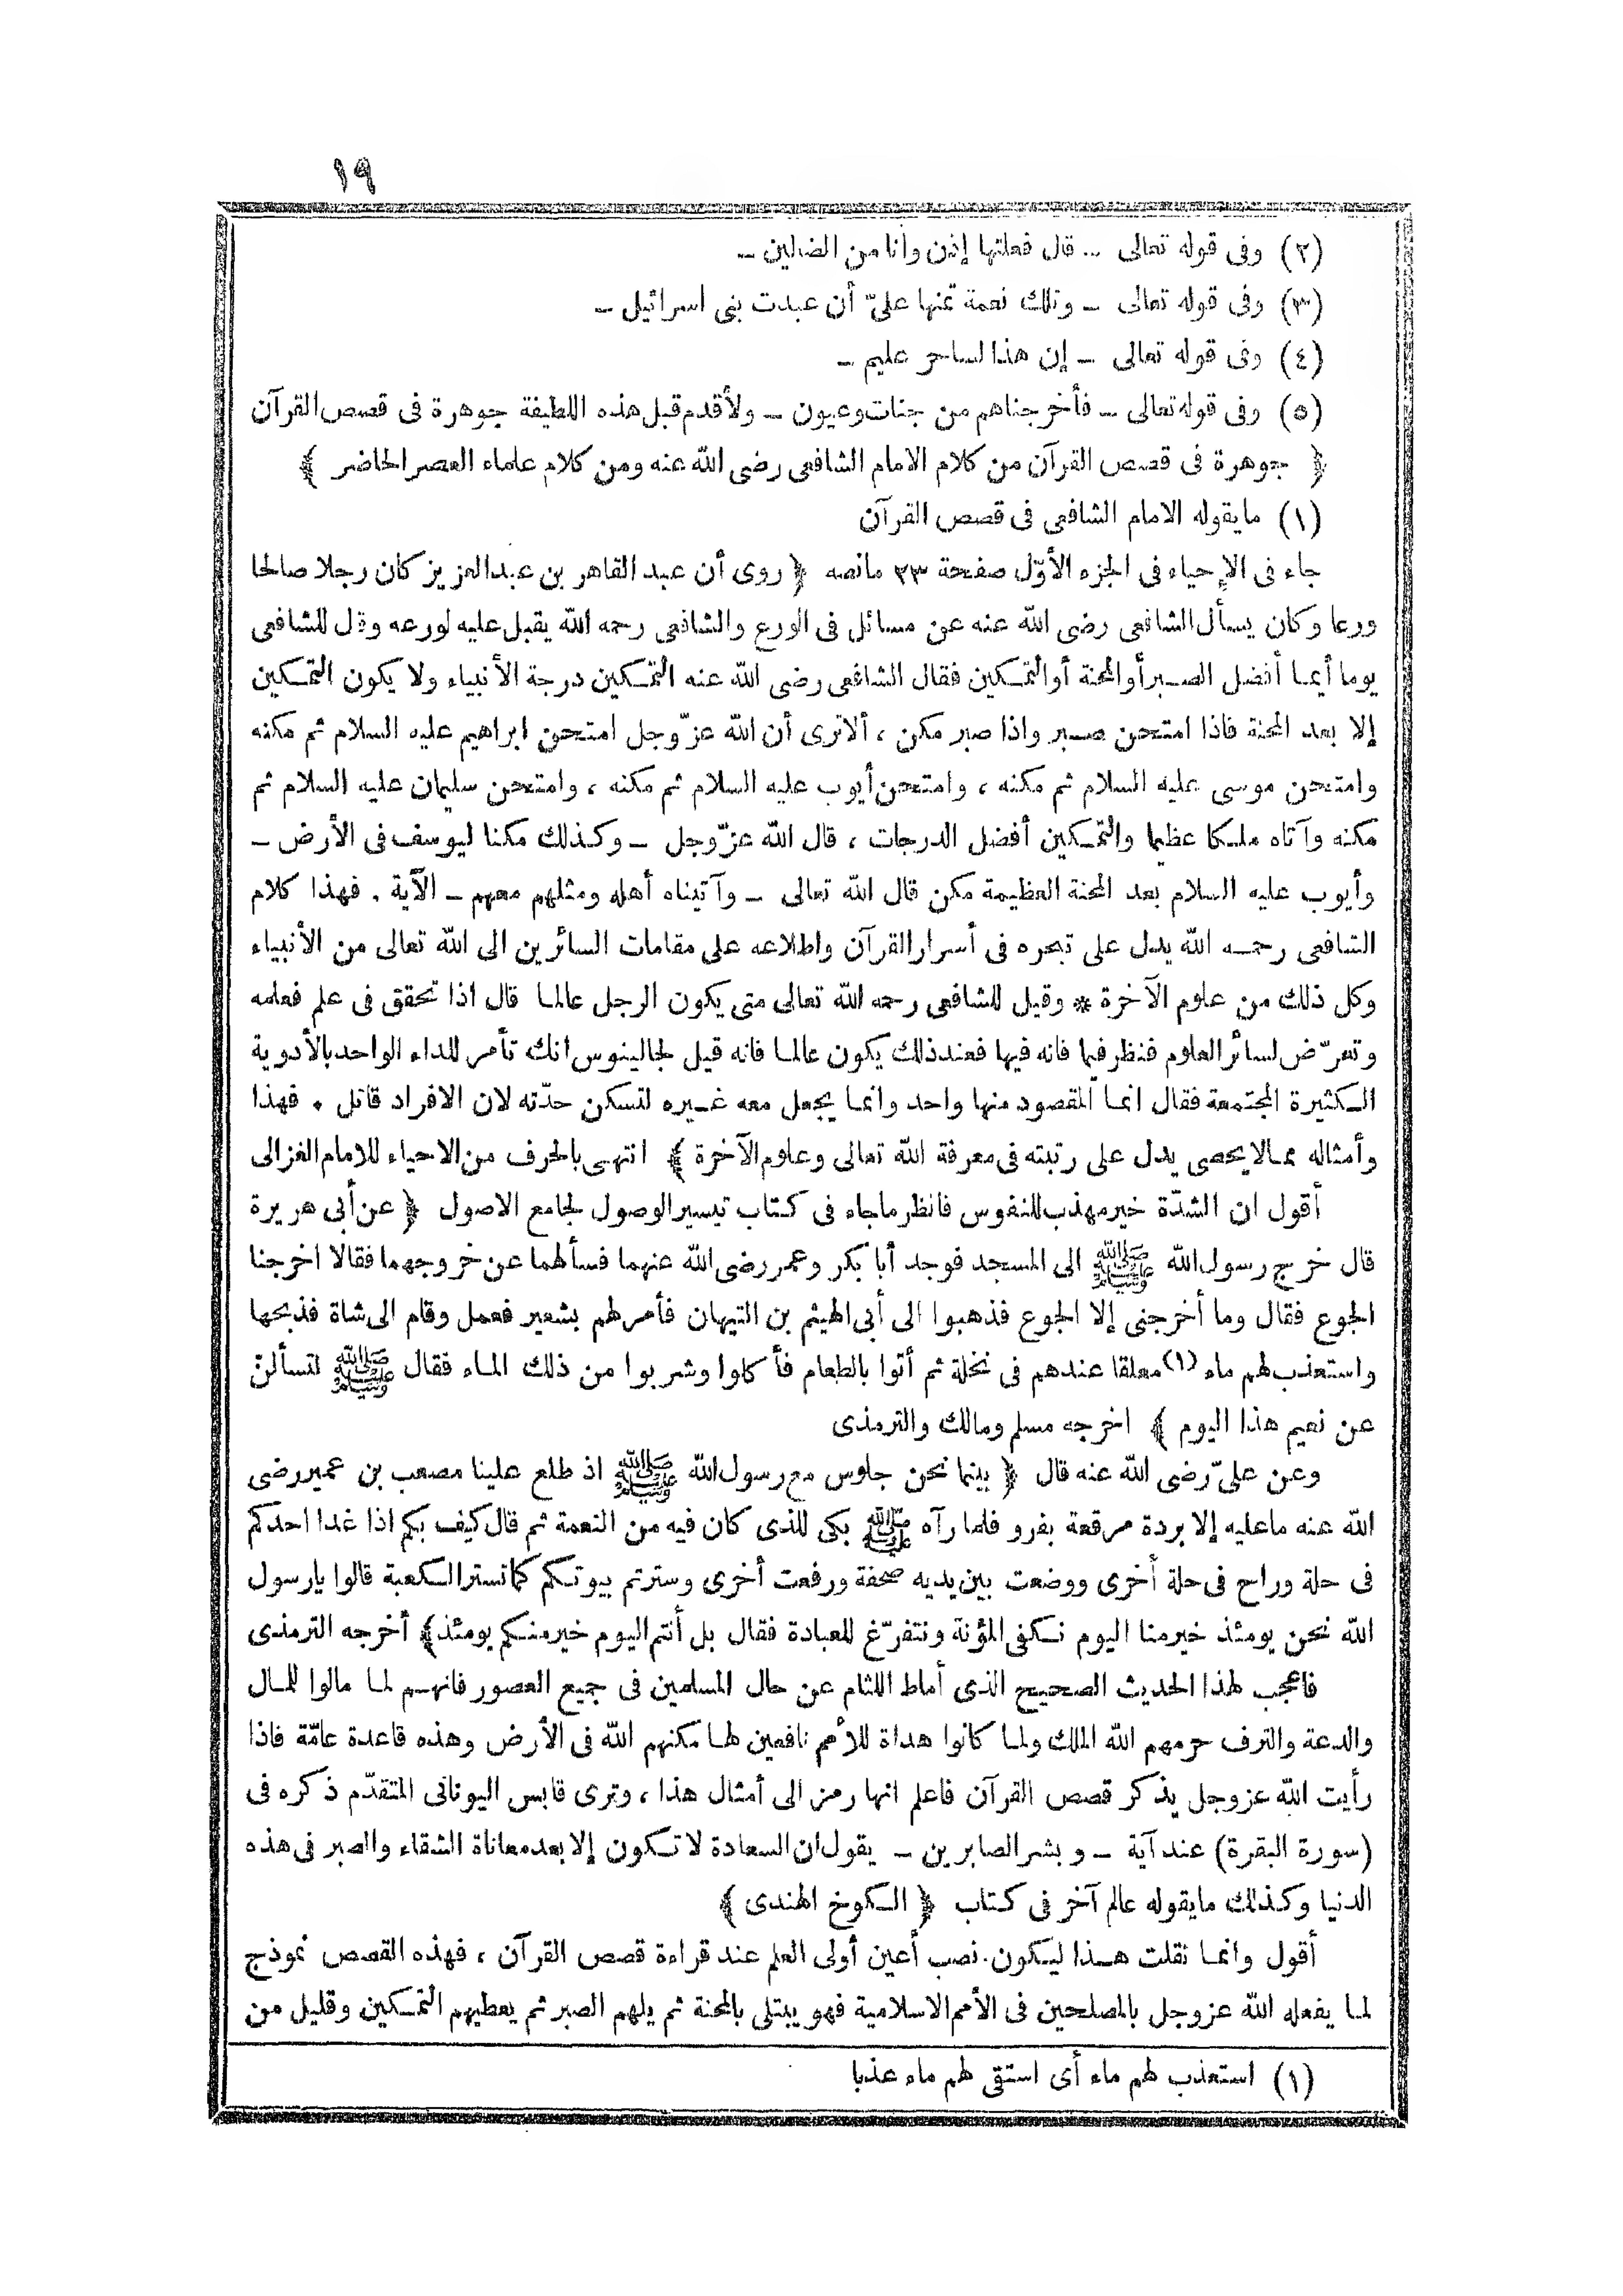 ١٩
(٢) وفى قوله تعالى - قال فعلتها إذن وأنا من الضالين -
(٣) وفى قوله تعالى - وتلك نعمة تمنها علىّ أن عبدت بنى اسرائيل -
(٤) وفى قوله تعالى - إن هذا لساحر عليم -
(٥) وفى قوله تعالى - فأخرجناهم من جنات وعيون - ولأقدم قبل هذه اللطيفة جوهرة فى قصص القرآن
﴿ جوهرة فى قصص القرآن من كلام الامام الشافعى رضى الله عنه ومن كلام علماء العصر الحاضر ﴾
(١) ما يقوله الامام الشافعى فى قصص القرآن
جاء فى الإحياء فى الجزء الأوّل صفحة ٢٣ مانصه ﴿ روى أن عبد القاهر بن عبد العزيز كان رجلا صالحا
ورعا وكان يسأل الشافعى رضى الله عنه عن مسائل فى الورع والشافعى رحمه الله يقبل عليه لورعه وقال للشافعى
يوما أيما أفضل الصبر أو المحنة أو التمكين فقال الشافعى رضى الله عنه التمكين درجة الأنبياء ولا يكون التمكين
إلا بعد المحنة فاذا امتحن صبر واذا صبر مكن ، ألا ترى أن الله عزّ وجل امتحن ابراهيم عليه السلام ثم مكنه
وامتحن موسى عليه السلام ثم مكنه ، وامتحن أيوب عليه السلام ثم مكنه ، وامتحن سليمان عليه السلام ثم
مكنه وآتاه ملكا عظيما والتمكين أفضل الدرجات ، قال الله عزّ وجل - وكذلك مكنا ليوسف فى الأرض -
وأيوب عليه السلام بعد المحنة العظيمة مكن قال الله تعالى - وآتيناه أهله ومثلهم معهم - الآية . فهذا كلام
الشافعى رحمه الله يدل على تبحره فى أسرار القرآن واطلاعه على مقامات السائرين الى الله تعالى من الأنبياء
وكل ذلك من علوم الآخرة * وقيل للشافعى رحمه الله تعالى متى يكون الرجل عالما قال اذا تحقق فى علم فعلمه
وتعرّض لسائر العلوم فنظر فيما فاته فيها فعند ذلك يكون عالما فانه قيل لجالينوس انك تأمر للداء الواحد بالأدوية
الكثيرة المجتمعة فقال انما المقصود منها واحد وانما يجعل معه غيره لتسكن حدّته لان الافراد قاتل . فهذا
وأمثاله مما لا يحصى يدل على رتبته فى معرفة الله تعالى وعلوم الآخرة ﴾ انتهى بالحرف من الاحياء للامام الغزالى
أقول ان الشدّة خير مهذب للنفوس فانظر ماجاء فى كتاب تيسير الوصول لجامع الاصول ﴿ عن أبى هريرة
قال خرج رسول الله ﷺ الى المسجد فوجد أبا بكر وعمر رضى الله عنهما فسألهما عن خروجهما فقالا اخرجنا
الجوع فقال وما أخرجنى إلا الجوع فذهبوا الى أبى الهيثم بن التيهان فأمر لهم بشعير فعمل وقام الى شاة فذبحها
واستعذب لهم ماء (١) معلقا عندهم فى نخلة ثم أتوا بالطعام فأكلوا وشربوا من ذلك الماء فقال ﷺ لتسألنّ
عن نعيم هذا اليوم ﴾ اخرجه مسلم ومالك والترمذى
وعن علىّ رضى الله عنه قال ﴿ بينما نحن جلوس مع رسول الله ﷺ اذ طلع علينا مصعب بن عمير رضى
الله عنه ما عليه إلا بردة مرقعة بفرو فلما رآه ﷺ بكى للذى كان فيه من النعمة ثم قال كيف بكم اذا غدا احدكم
فى حلة وراح فى حلة أخرى ووضعت بين يديه صحفة ورفعت أخرى وسترتم بيوتكم كما تستر الكعبة قالوا يارسول
الله نحن يومئذ خير منا اليوم نكفى المؤنة ونتفرّغ للعبادة فقال بل أنتم اليوم خير منكم يومئذ﴾ أخرجه الترمذى
فاعجب لهذا الحديث الصحيح الذى أماط اللثام عن حال المسلمين فى جميع العصور فانهم لما مالوا للمال
والدعة والترف حرمهم الله الملك ولما كانوا هداة للأمم نافعين لها مكنهم الله فى الأرض وهذه قاعدة عامّة فاذا
رأيت الله عز وجل يذكر قصص القرآن فاعلم انها رمز الى أمثال هذا ، وترى قابس اليونانى المتقدّم ذكره فى
(سورة البقرة) عند آية - وبشر الصابرين - يقول ان السعادة لا تكون إلا بعد معاناة الشقاء والصبر فى هذه
الدنيا وكذلك مايقوله عالم آخر فى كتاب ﴿ الكوخ الهندى ﴾
أقول وانما نقلت هذا ليكون نصب أعين أولى العلم عند قراءة قصص القرآن ، فهذه القصص نموذج
لما يفعله الله عز وجل بالمصلحين فى الأمم الاسلامية فهو يبتلى بالمحنة ثم يلهم الصبر ثم يعطيهم التمكين وقليل من
(١) استعذب لهم ماء أى استقى لهم ماء عذبا